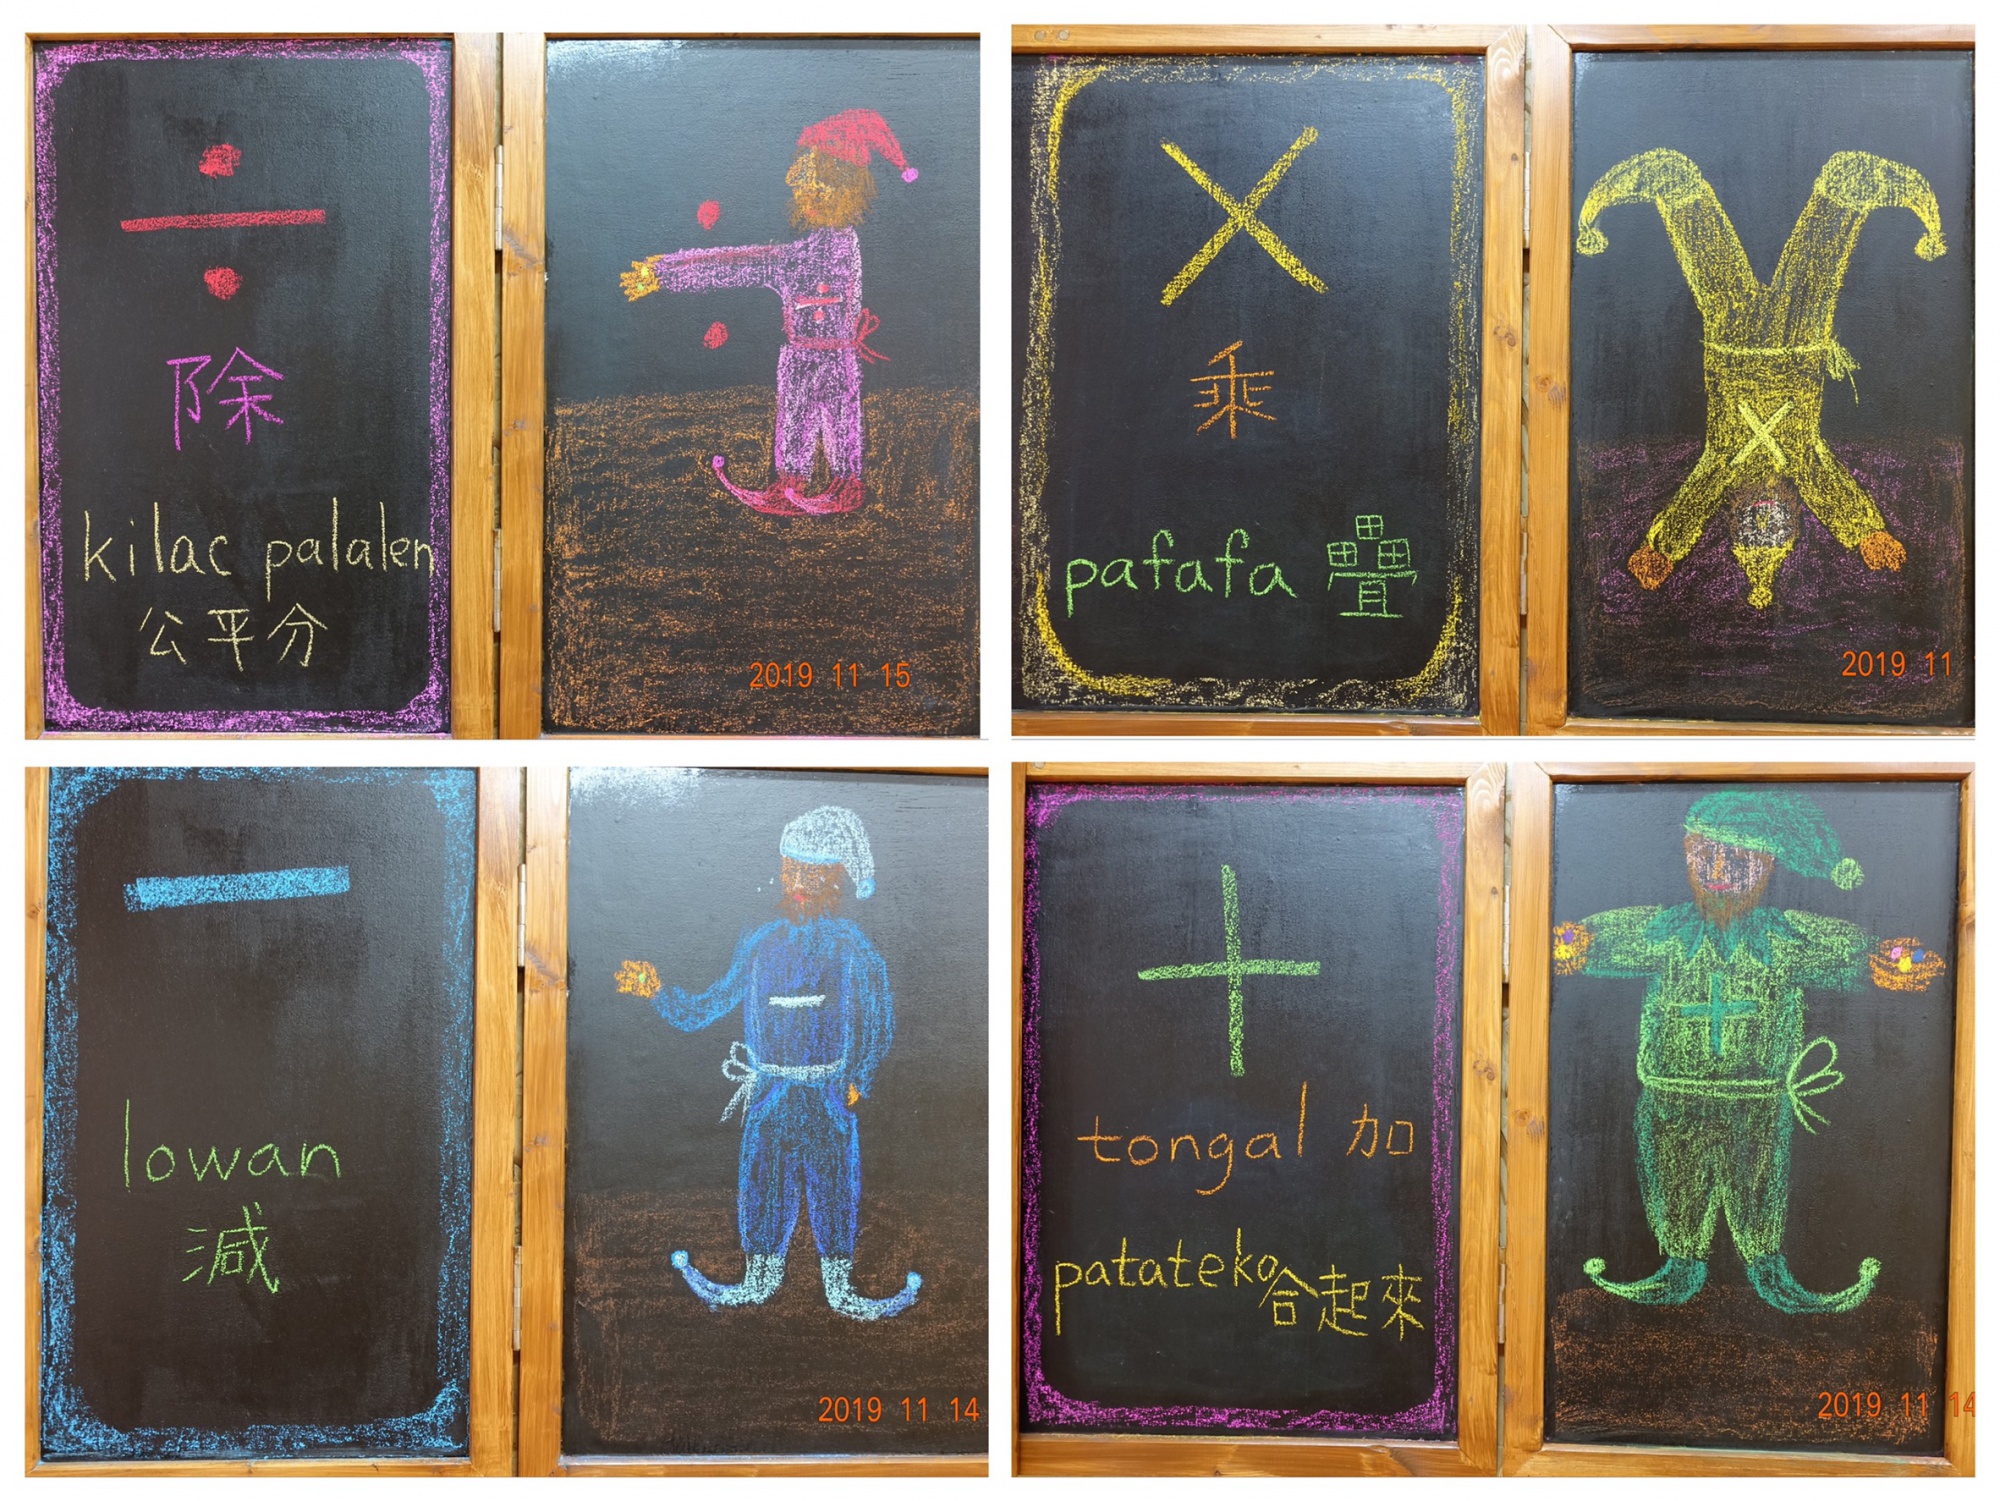 ÷
除
kilac palalen
公平分
2019 11 15
×
乘
pafafa 疊
2019 11
−
lowan
減
2019 11 14
+
tongal 加
patateko 合起來
2019 11 14